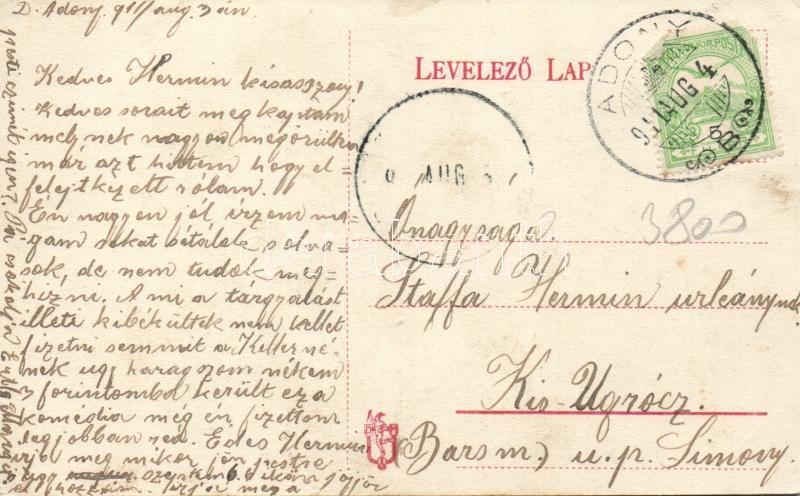 D. Adony. 911/aug 3 án
Kedves Hermin kisasszony!
Kedves sorait megkaptam
melynek nagyon megörültem
már azt hittem hogy el=
felejtkezett rólam.
Én nagyon jól érzem ma=
gam sokat sétálok s olva=
sok, de nem tudok meg=
hizni. A mi a tárgyalást
illeti kibékültek nem kellet
fizetni semmit a Kellerné=
nek ugy haragszom nékem
3 forintomba került ez a
komédia még én fizettem
legjobban rá. Édes Hermin
irja meg mikor jön pestre
LEVELEZŐ LAP
ADONY
911 AUG 4
5
B
AUG
3800
Önagysága
Staffa Hermin urleánynak
Kis Ugrócz.
(Bars m.) u. p. Simony.